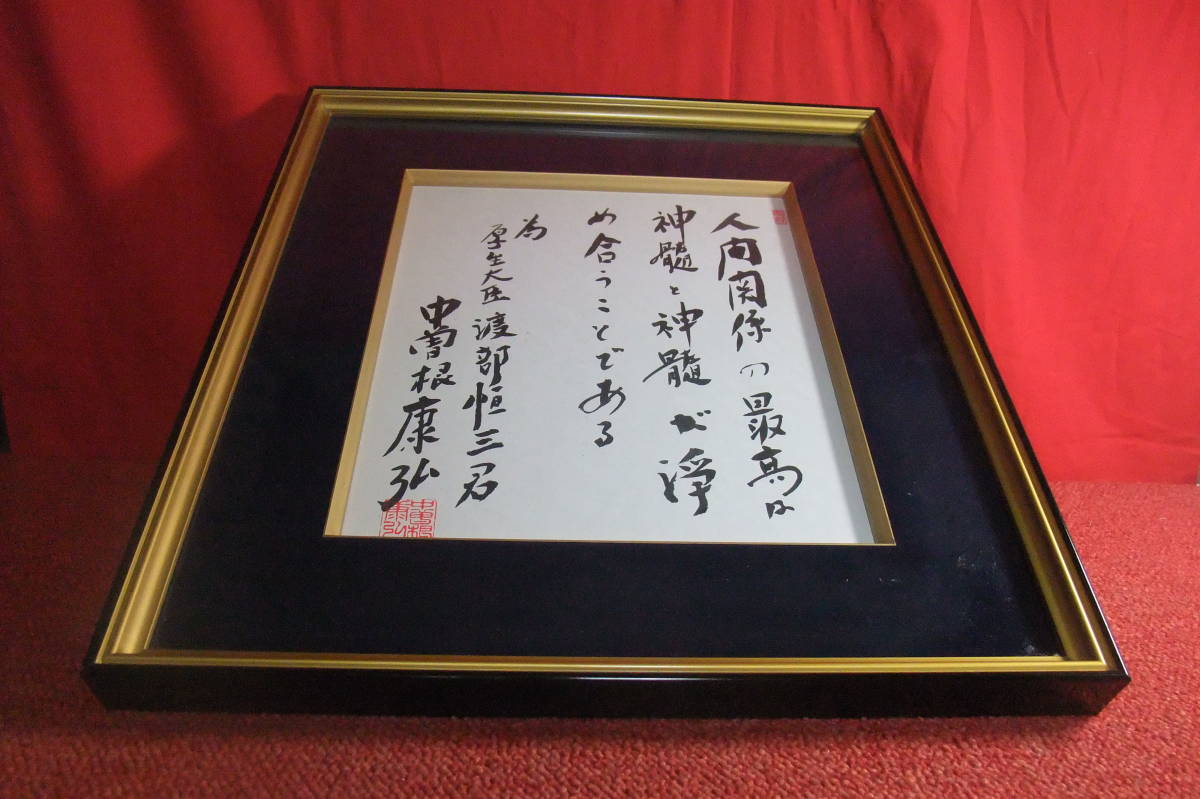 人間関係の最高は
神髄と神髄が浄
め合うことである
為
厚生大臣 渡部恒三君
中曽根康弘